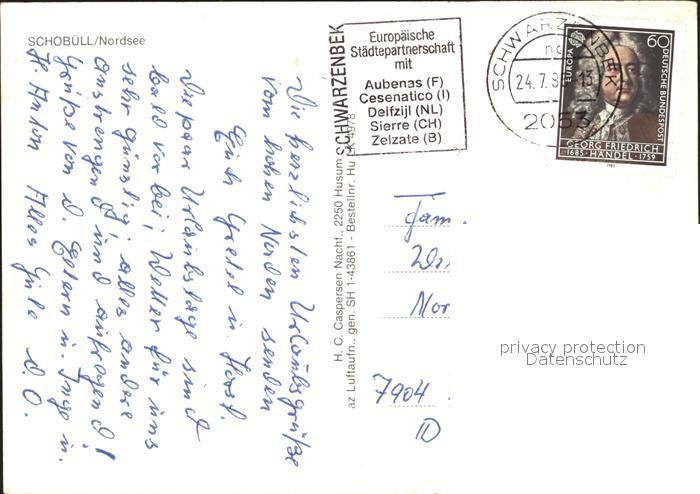 SCHOBÜLL/Nordsee
Die herzlichsten Urlaubsgrüße
vom hohen Norden senden
Euch Gretel u. Horst.
Die paar Urlaubstage sind
bald vorbei; Wetter für uns
sehr günstig; alles andere
anstrengend und aufregend!
Grüße von d. Eltern u. Inge u.
H. Anton Alles Gute d. O.
H. C. Caspersen Nachf., 2250 Husum
az Luftaufn., gen. SH 1-43861 - Bestellnr. Hu 4978
SCHWARZENBEK
Europäische
Städtepartnerschaft
mit
Aubenas (F)
Cesenatico (I)
Delfzijl (NL)
Sierre (CH)
Zelzate (B)
SCHWARZENBEK
24.7.85-13
2053
EUROPA
60
DEUTSCHE BUNDESPOST
GEORG FRIEDRICH
1685 HÄNDEL 1759
Fam.
Nor
7904
privacy protection
Datenschutz